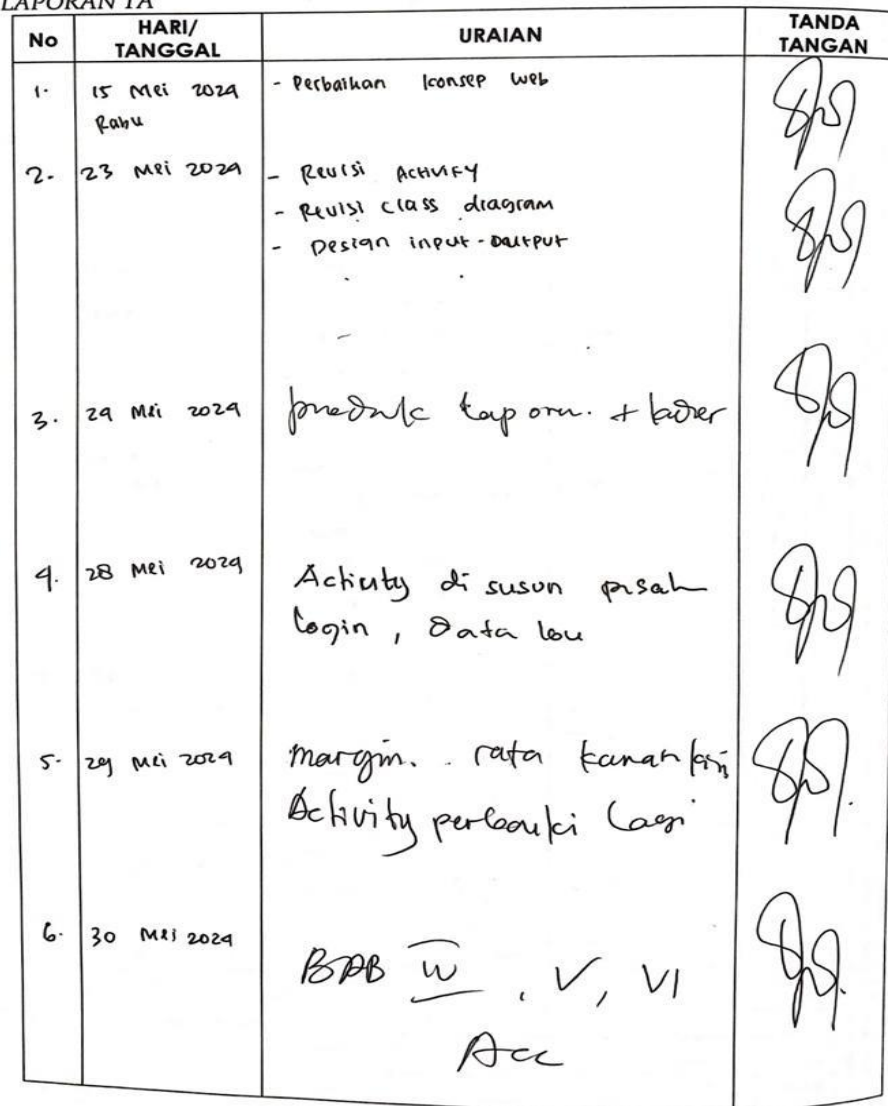 LAPORAN TA
No HARI/ TANGGAL URAIAN TANDA TANGAN
1. 15 Mei 2024 - Perbaikan konsep web
Rabu
2. 23 Mei 2024 - Revisi Activity
- Revisi class diagram
- Design input-output
3. 24 Mei 2024
4. 28 Mei 2024 Activity di susun pisah
login, Data
5. 29 Mei 2024 margin. rata kanan kiri
Activity perbaiki lagi
6. 30 Mei 2024 BAB IV, V, VI
Acc